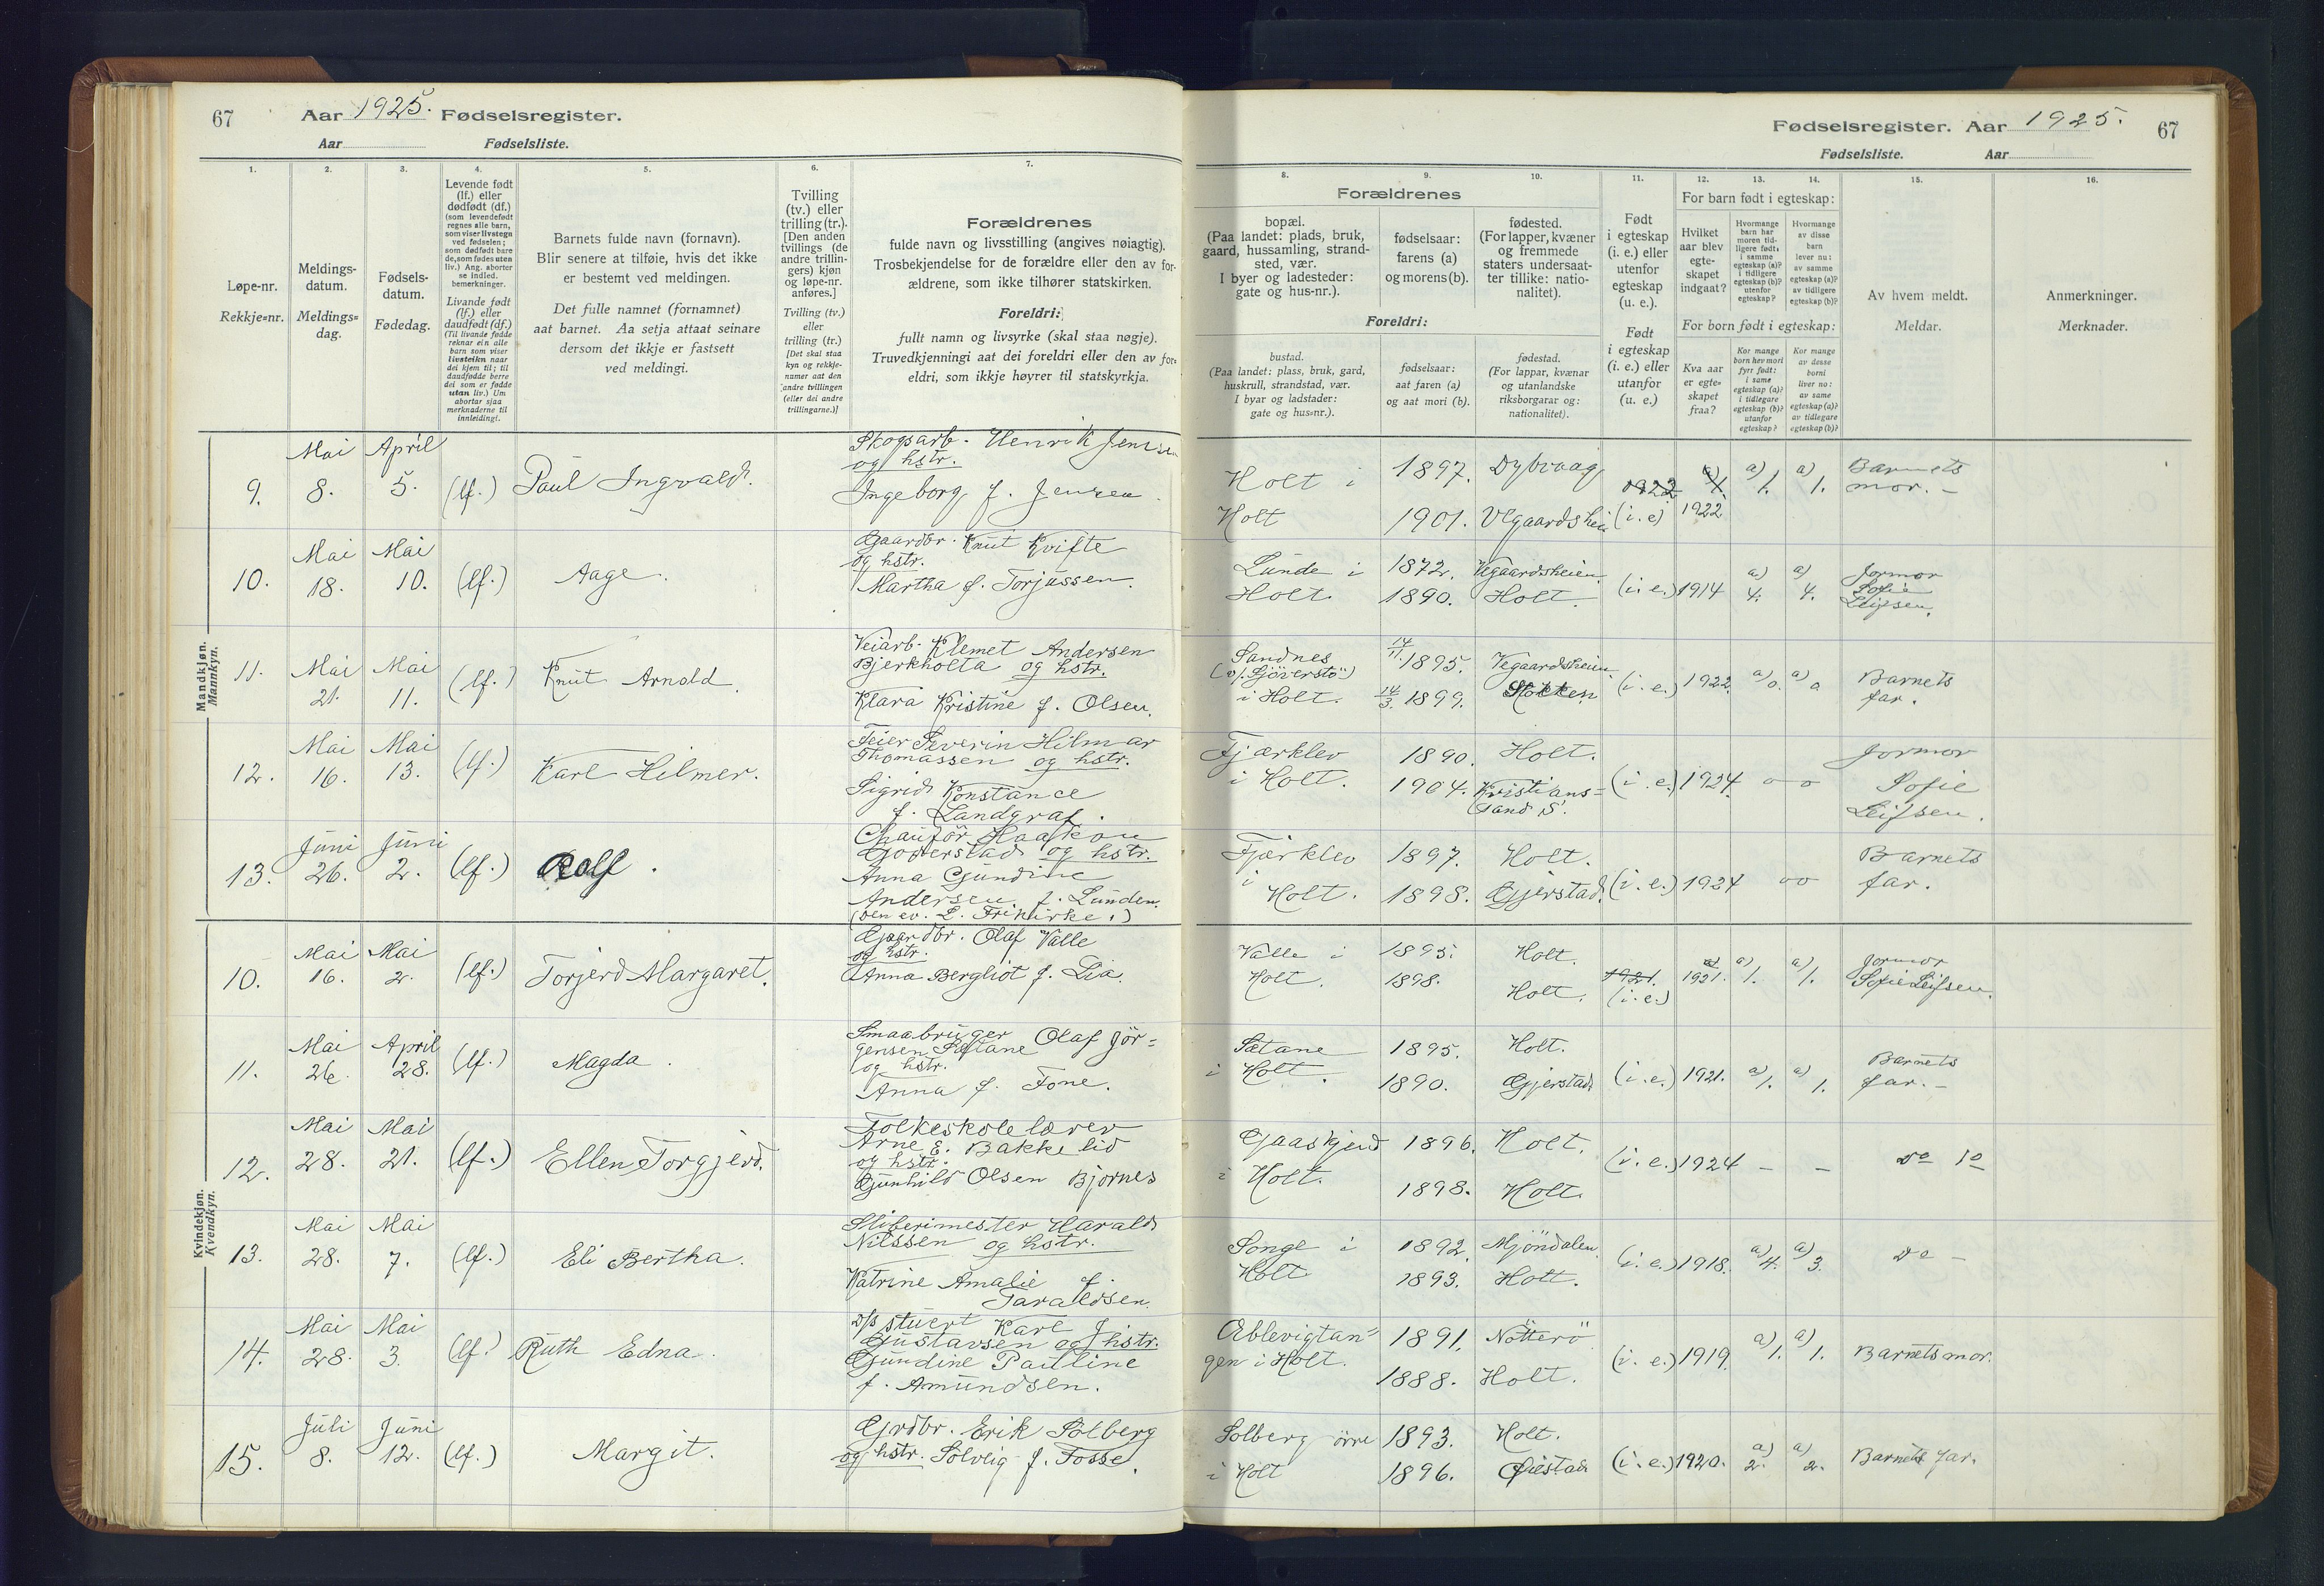 67 Aar 1925. Fødselsregister.
Aar Fødselsliste.
1. 2. 3. 4. 5. 6. 7.
Løpe-nr.
Rekkje=nr.
Meldings-
datum.
Meldings=
dag.
Fødsels-
datum.
Fødedag.
Levende født
(lf.) eller
dødfødt (df.)
(som levendefødt
regnes alle barn,
som viser livstegn
ved fødselen;
som dødfødt bare
de, som fødes uten
liv.) Ang. aborter
se indled.
bemerkninger.
Livande født
(lf.) eller
daudfødt (df.)
(Til livande fødde
reknar ein alle
barn som viser
livsteikn naar
dei kjem til; til
daudfødde berre
dei som er fødde
utan liv.) Um
abortar sjaa
merknaderne til
innleidingi.
Barnets fulde navn (fornavn).
Blir senere at tilføie, hvis det ikke
er bestemt ved meldingen.
Det fulle namnet (fornamnet)
aat barnet. Aa setja attaat seinare
dersom det ikkje er fastsett
ved meldingi.
Tvilling
(tv.) eller
trilling (tr.).
[Den anden
tvillings (de
andre trillin-
gers) kjøn
og løpe-nr.
anføres.]
Tvilling (tv.)
eller
trilling (tr.)
[Det skal staa
kyn og rekkje-
numer aat den
andre tvillingen
(eller dei andre
trillingarne.)]
Forældrenes
fulde navn og livsstilling (angives nøiagtig).
Trosbekjendelse for de forældre eller den av for-
ældrene, som ikke tilhører statskirken.
Foreldri:
fullt namn og livsyrke (skal staa nøgje).
Truvedkjenningi aat dei foreldri eller den av for=
eldri, som ikkje høyrer til statskyrkja.
Mandkjøn.
Mannkyn.
9. Mai 8. April 5. (lf.) Paul Ingvald.
Skogsarb. Henrik Jensen
og hstr.
Ingeborg f. Jensen.
10. Mai 18. Mai 10. (lf.) Aage.
Gaardbr. Knut Kvifte
og hstr.
Martha f. Torjussen.
11. Mai 21. Mai 11. (lf.) Knut Arnold.
Veiarb. Klemet Andersen
Bjerkholta og hstr.
Klara Kristine f. Olsen.
12. Mai 16. Mai 13. (lf.) Karl Hilmer.
Feier Severin Hilmar
Thomassen og hstr.
Sigrid Konstance
f. Landgraf.
13. Juni 26. Juni 2. (lf.) Rolf.
Chauför Haakon
Goderstad og hstr.
Anna Gundine
Andersen f. Lunden.
(den ev. L. Frikirke.)
Kvindekjøn.
Kvendkyn.
10. Mai 16. Mai 2. (lf.) Torjerd Margaret.
Gaardbr. Olaf Valle
og hstr.
Anna Bergliot f. Lia.
11. Mai 26. April 28. (lf.) Magda.
Smaabruger Olaf Jör=
gensen Sætane
og hstr.
Anna f. Tone.
12. Mai 28. Mai 21. (lf.) Ellen Torgjerd.
Folkeskolelærer
Arne E. Bakkelid
og hstr.
Gunhild Olsen Bjornes
13. Mai 28. Mai 7. (lf.) Eli Bertha.
Sliberimester Harald
Nilssen og hstr.
Katrine Amalie f.
Taraldsen.
14. Mai 28. Mai 3. (lf.) Ruth Edna.
D/s stuert Karl J.
Gustavsen og hstr.
Gundine Pauline
f. Amundsen.
15. Juli 8. Juni 12. (lf.) Margit.
Grdbr. Erik Solberg
og hstr. Solveig f. Fosse.
Fødselsregister. Aar 1925. 67
Fødselsliste. Aar
8. 9. 10. 11. 12. 13. 14. 15. 16.
Forældrenes
bopæl.
(Paa landet: plads, bruk,
gaard, hussamling, strand-
sted, vær.
I byer og ladesteder:
gate og hus-nr.).
fødselsaar:
farens (a)
og morens (b).
fødested.
(For lapper, kvæner
og fremmede
staters undersaat-
ter tillike: natio-
nalitet).
Foreldri:
bustad.
(Paa landet: plass, bruk, gard,
huskrull, strandstad, vær.
I byar og ladstader:
gate og hus=nr.).
fødselsaar:
aat faren (a)
og aat mori (b).
fødestad.
(For lappar, kvænar
og utanlandske
riksborgarar og:
nationalitet).
Født
i egteskap
(i. e.) eller
utenfor
egteskap
(u. e.).
Født
i egteskap
(i. e.) eller
utanfor
(u. e.)
For barn født i egteskap:
Hvilket
aar blev
egte-
skapet
indgaat?
Hvormange
barn har
moren tid-
ligere født:
i samme
egteskap (a)?
i tidligere
egteskap (b)?
utenfor
egteskap?
Hvormange
av disse
barn
lever nu:
av samme
egteskap (a)?
av tidligere
egteskap (b)?
For born født i egteskap:
Kva aar
er egte=
skapet
fraa?
Kor mange
born hev mori
fyrr født:
i same
egteskap (a)?
i tidlegare
egteskap (b)?
utanfor
egteskap?
Kor mange
av desse
borni
liver no:
av same
egteskap (a)?
av tidlegare
egteskap (b)?
Av hvem meldt.
Meldar.
Anmerkninger.
Merknader.
Holt i 1897. Dybvaag 1922 a) 1. a) 1. a) 1. Barnets
mor. -
Holt 1901. Vegaardshei (i. e) 1922
Lunde i 1872. Vegaardsheien. a) a) Jormor
Holt. 1890. Holt. (i. e.) 1914 4. 4. Sofie
Leifsen.
Sandnes 14/11 1895. Vegaardsheien.
(v/ Sjöverstö) (i. e.) 1922. a) 0. a) 0 Barnets
i Holt. 14/3. 1899. Stokken far.
Fjærklev 1890. Holt. Jormor
i Holt. 1904. Kristians= (i. e.) 1924 o o Sofie
sand S. Leifsen.
Fjærklev 1897. Holt. Barnets
i Holt. 1898. Gjerstad. (i. e.) 1924 o o far.
Valle i 1895. Holt. a) a) Jormor
Holt. 1898. Holt. 1921. (i. e.) 1921. 1. 1. Sofie Leifsen.
Sætane 1895. Holt. Barnets
i Holt. 1890. Gjerstad (i. e.) 1921. a) 1. a) 1. far. -
Gjaaskjerd 1896. Holt.
i Holt. 1898. Holt. (i. e.) 1924 - - do do
Songe i 1892. Mjöndalen.
Holt 1893. Holt. (i. e.) 1918. a) 4. a) 3. do -
Æblevigtan= 1891. Nötterö
gen i Holt. 1888. Holt. (i. e.) 1919. a) 1. a) 1. Barnets mor.
Solberg örre 1893. Holt.
i Holt 1896. Øiestad (i. e.) 1920. a) 2. a) 2. Barnets far.